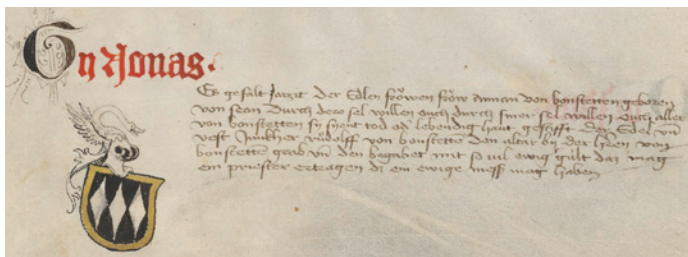 Gn Nonas.
Es gefalt Jarzit der Edlen fröwen fröw annan von bonstetten geboren
von sean Durch dero sel willen ouch durch siner sel willen Ouch aller
von bonstetten sy syent tod od lebendig haut gestifft Der Edel vn̄
vest Junkher růdolff von bonstettē Den altar bÿ der hren von
bonstettē grab vn̄ den begabet mit so vil ewig gült daz mag
ein priester ertragen dz ein ewige mess mag haben